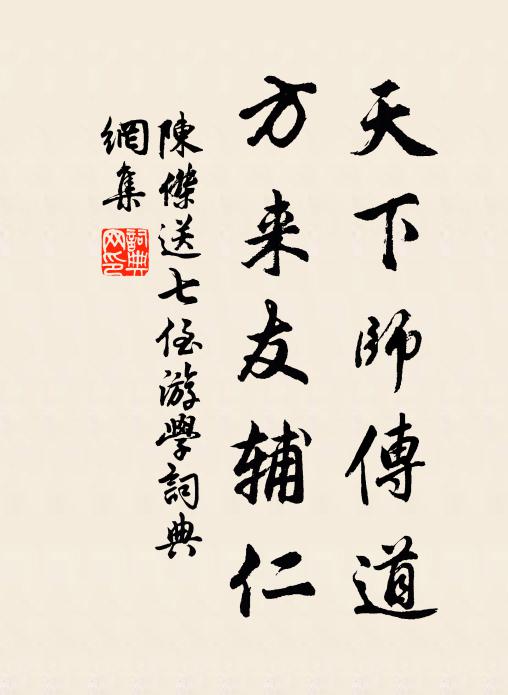 天下師傳道
方来友輔仁
陳傑送七侄游學詞典
網集
詞典網印